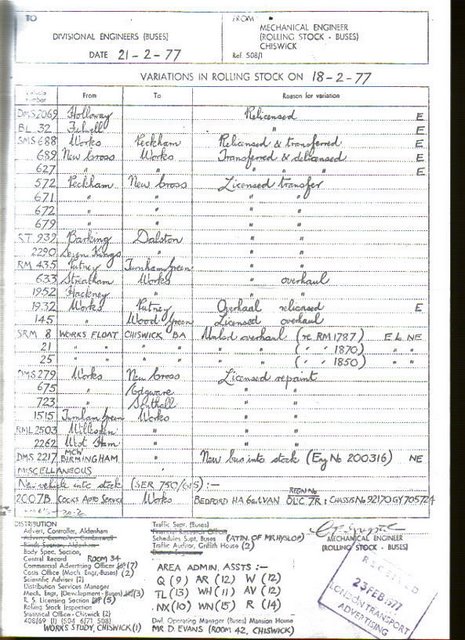 TO
DIVISIONAL ENGINEERS (BUSES)
DATE 21-2-77
FROM
MECHANICAL ENGINEER
(ROLLING STOCK - BUSES)
CHISWICK
Ref. 508/1
VARIATIONS IN ROLLING STOCK ON 18-2-77
Number From To Reason for variation
DMS 2069 Holloway Relicensed E
BL 32 Fulwell " E
SMS 688 Works Peckham Relicensed & transferred E
689 New Cross Works Transferred & delicensed E
627 " " " " " E
572 Peckham New Cross Licensed transfer
671 " " " "
672 " " " "
679 " " " "
RT 932 Barking Dalston " "
2290 Seven Kings " " "
RM 435 Putney Turnham Green " "
633 Streatham Works " overhaul
1952 Hackney " " "
1932 Works Putney Overhaul relicensed E
145 " Wood Green Licensed overhaul
SRM 8 WORKS FLOAT CHISWICK BA Unlicd overhaul (re RM 1787) E & NE
21 " " " " " " ( " " 1870) " "
25 " " " " " " ( " " 1850) " "
DMS 279 Works New Cross Licensed repaint
675 " Edgware " "
723 " Southall " "
1515 Turnham Green Works " "
RML 2503 Willesden " " "
2262 West Ham " " "
DMS 2217 MCW BIRMINGHAM " New bus into stock (Eng No 200316) NE
MISCELLANEOUS
New vehicle into stock (SER 750/645) :-
2007B COCKS AUTO SERVICE Works BEDFORD HA 6cwt VAN REGN No OLC 7R : CHASSIS No 9217OGY705724
DISTRIBUTION
Advert. Controller, Aldenham
Body Spec. Section,
Central Record ROOM 34
Commercial Advertising Officer (7)
Costs Office (Mech. Engr. Buses) (2)
Scientific Adviser (2)
Distribution Services Manager
Mech. Engr. (Development - Buses) (3)
R. S. Licensing Section (5)
Rolling Stock Inspection
Statistical Officer - Chiswick (2)
408/69 (1) 504 6/71 508)
WORKS STUDY, CHISWICK (1)
Traffic Supt. (Buses)
Schedules Supt. Buses (ATTN. OF MR. HYSLOP)
Traffic Author, Griffith House (2)
AREA ADMIN. ASSTS :-
Q (9) AR (12) W (12)
TL (13) WH (11) AV (12)
NX (10) WN (15) R (14)
Dvl. Operating Manager (Buses) Mansion House
MR D. EVANS (ROOM 42, CHISWICK)
MECHANICAL ENGINEER
(ROLLING STOCK - BUSES)
RECEIVED
23 FEB 1977
LONDON TRANSPORT
ADVERTISING